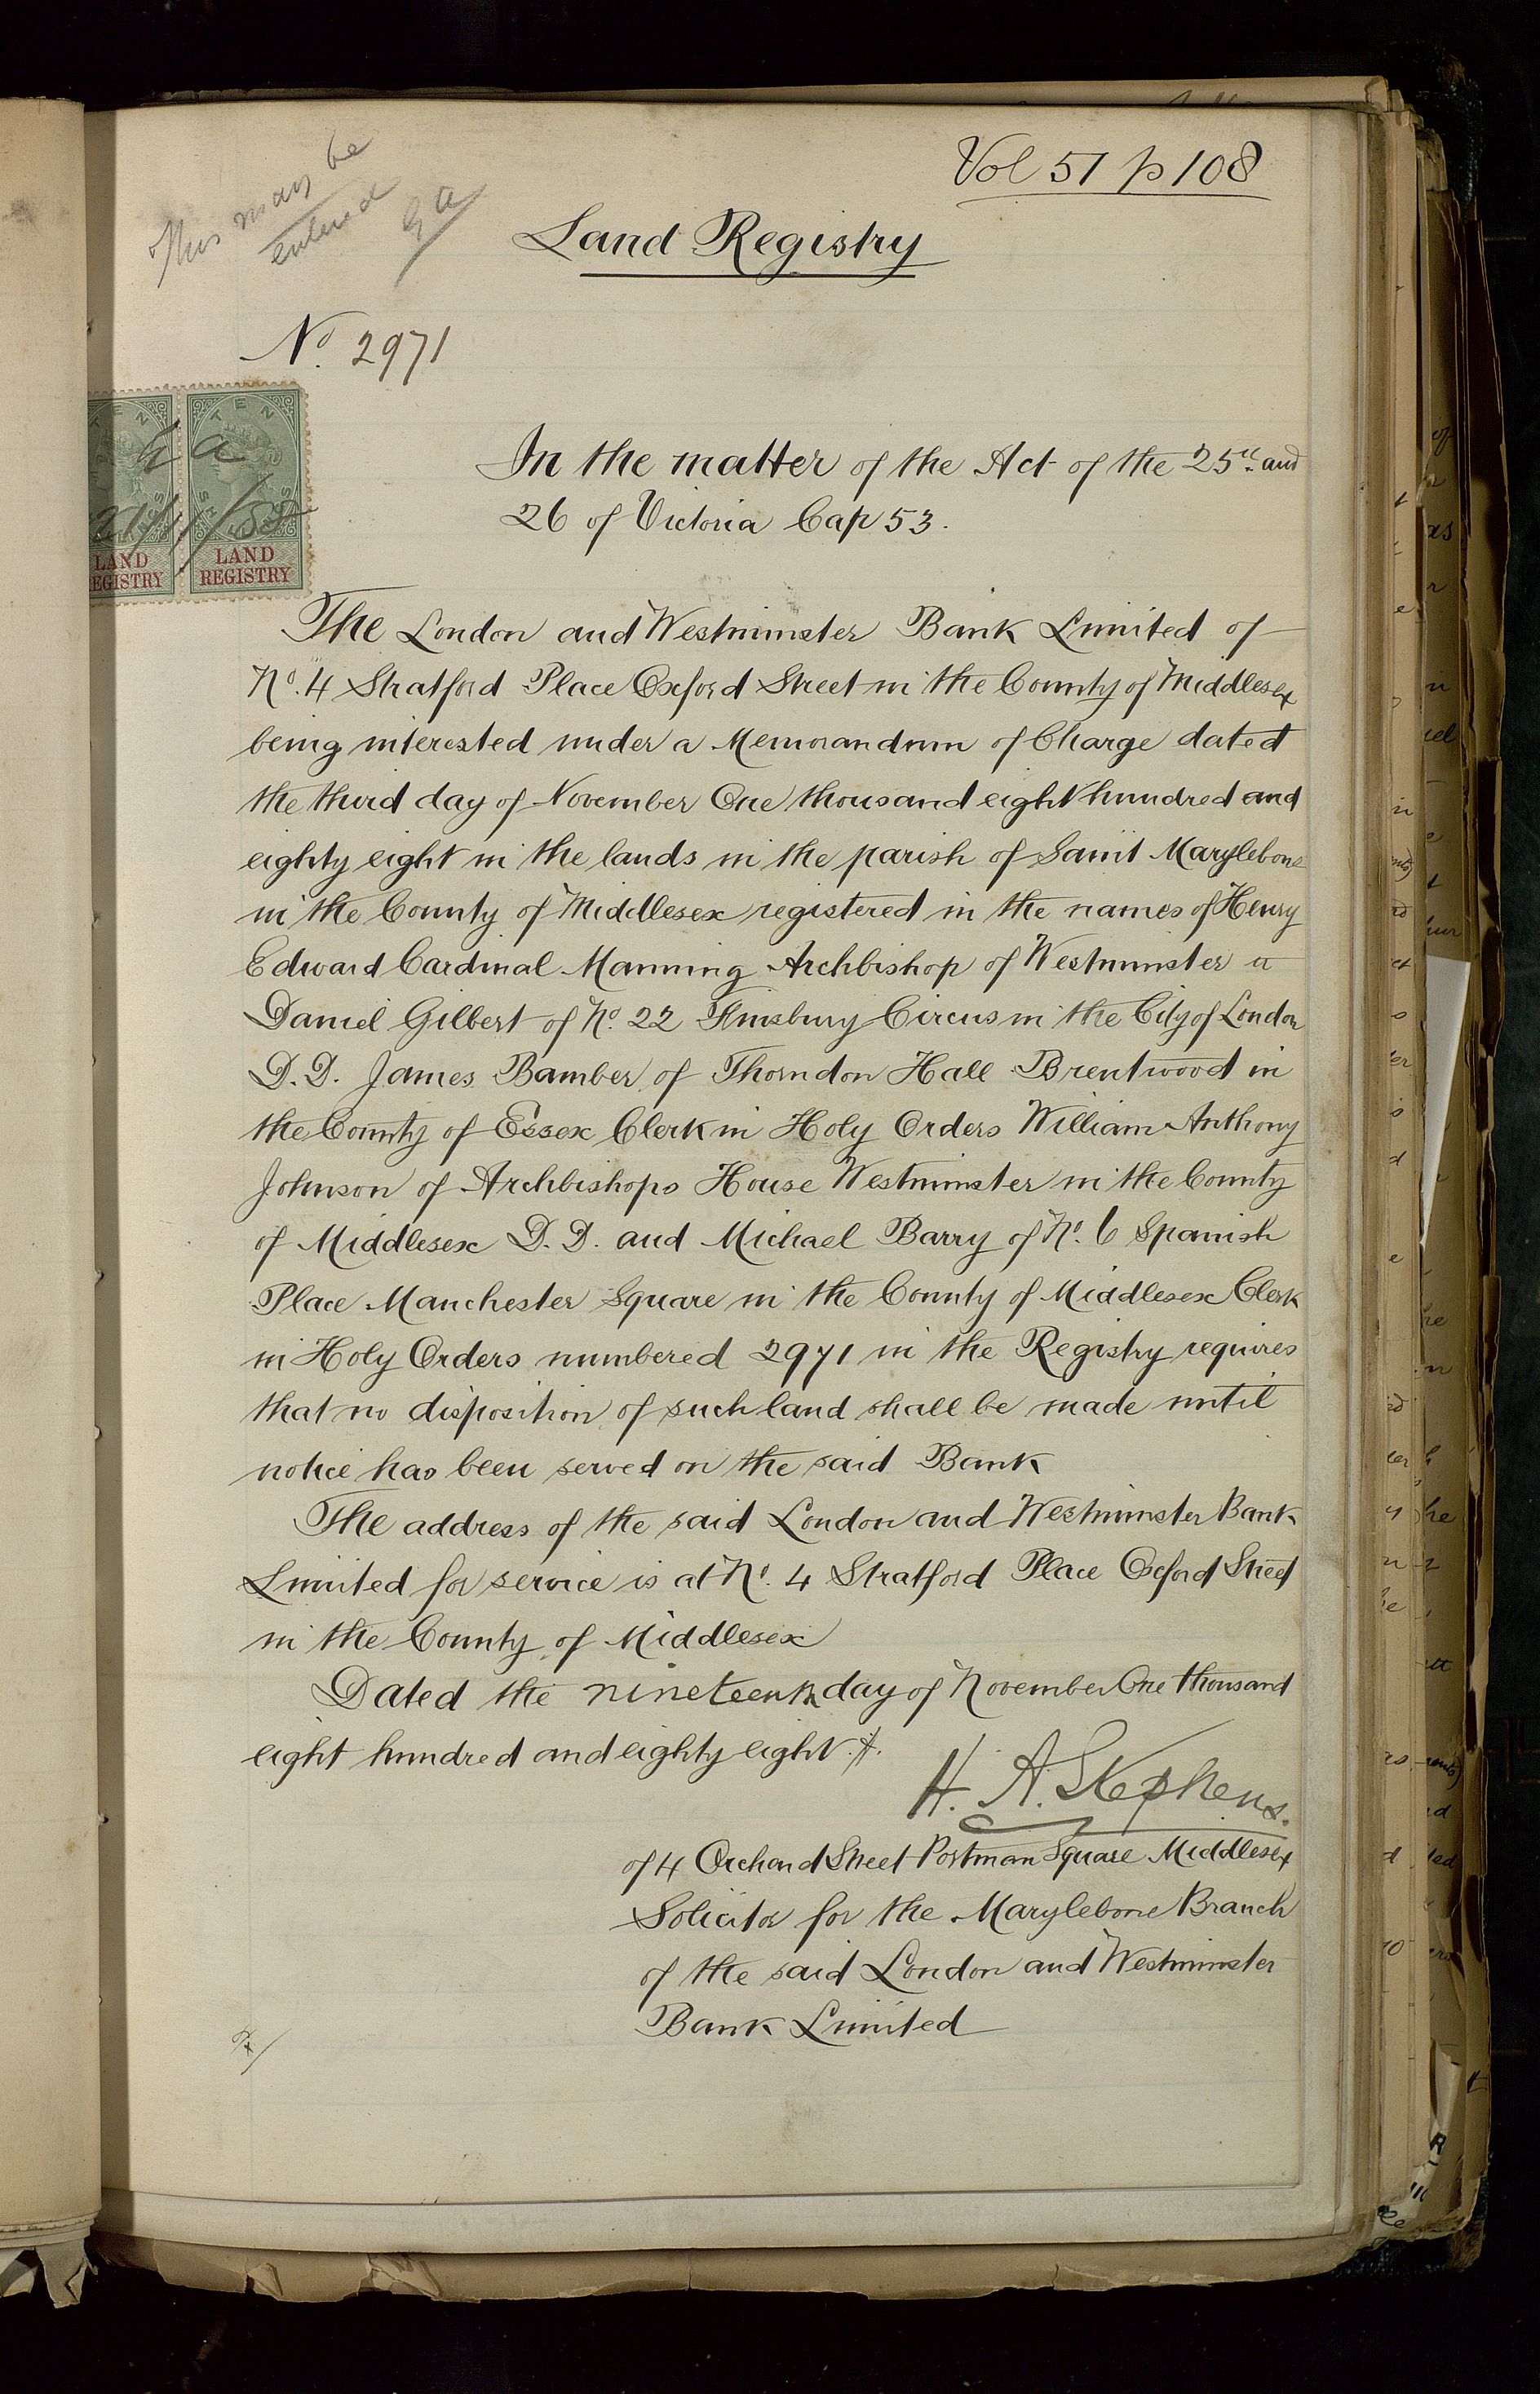 Vol 51 p 108
This may be
entered
Land Registry
No. 2971
TEN
LAND
REGISTRY
LAND
REGISTRY
In the matter of the Act of the 25th and
26 of Victoria Cap 53.
The London and Westminster Bank Limited of
No. 4 Stratford Place Oxford Street in the County of Middlesex
being interested under a Memorandum of Charge dated
the third day of November One thousand eight hundred and
eighty eight in the lands in the parish of Saint Marylebone
in the County of Middlesex registered in the names of Henry
Edward Cardinal Manning Archbishop of Westminster
Daniel Gilbert of No. 22 Finsbury Circus in the City of London
D.D. James Bamber of Thorndon Hall Brentwood in
the County of Essex Clerk in Holy Orders William Anthony
Johnson of Archbishops House Westminster in the County
of Middlesex D.D. and Michael Barry of No. 6 Spanish
Place Manchester Square in the County of Middlesex Clerk
in Holy Orders numbered 2971 in the Registry requires
that no disposition of such land shall be made until
notice has been served on the said Bank
The address of the said London and Westminster Bank
Limited for service is at No. 4 Stratford Place Oxford Street
in the County of Middlesex
Dated the nineteenth day of November One thousand
eight hundred and eighty eight.
H. A. Stephens.
of 4 Orchard Street Portman Square Middlesex
Solicitor for the Marylebone Branch
of the said London and Westminster
Bank Limited